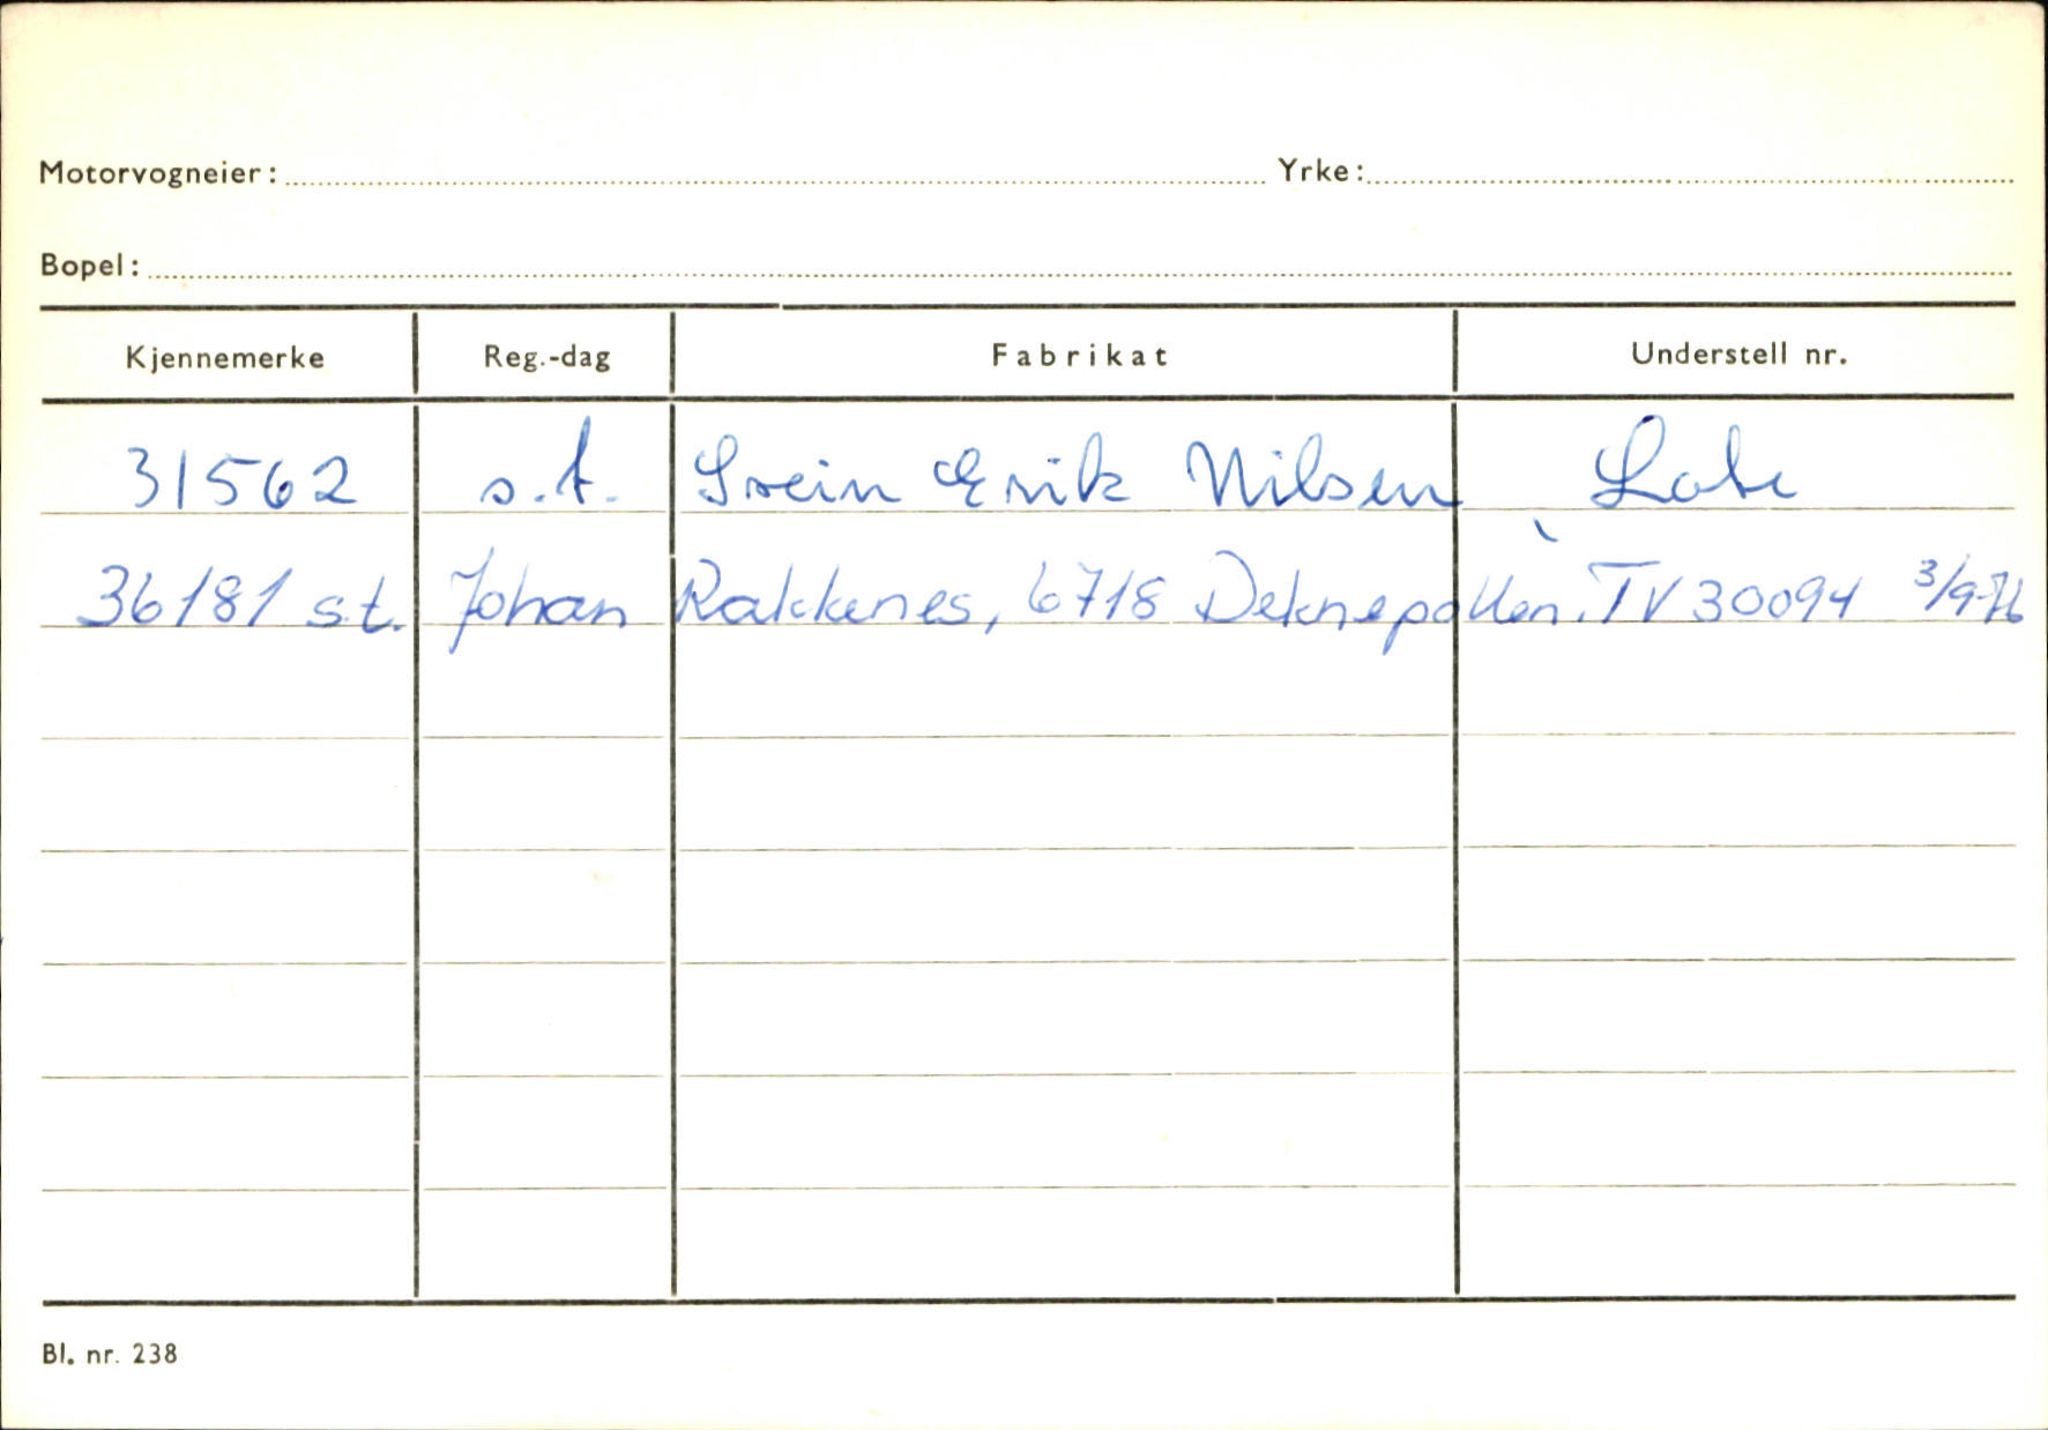 Motorvogneier: Yrke:
Bopel:
Kjennemerke Reg.-dag Fabrikat Understell nr.
31562 s.t. Svein Erik Nilsen
36181 s.t. Johan Rakkenes, 6718 Deknepollen. TV30094 3/9-76
Bl. nr. 238